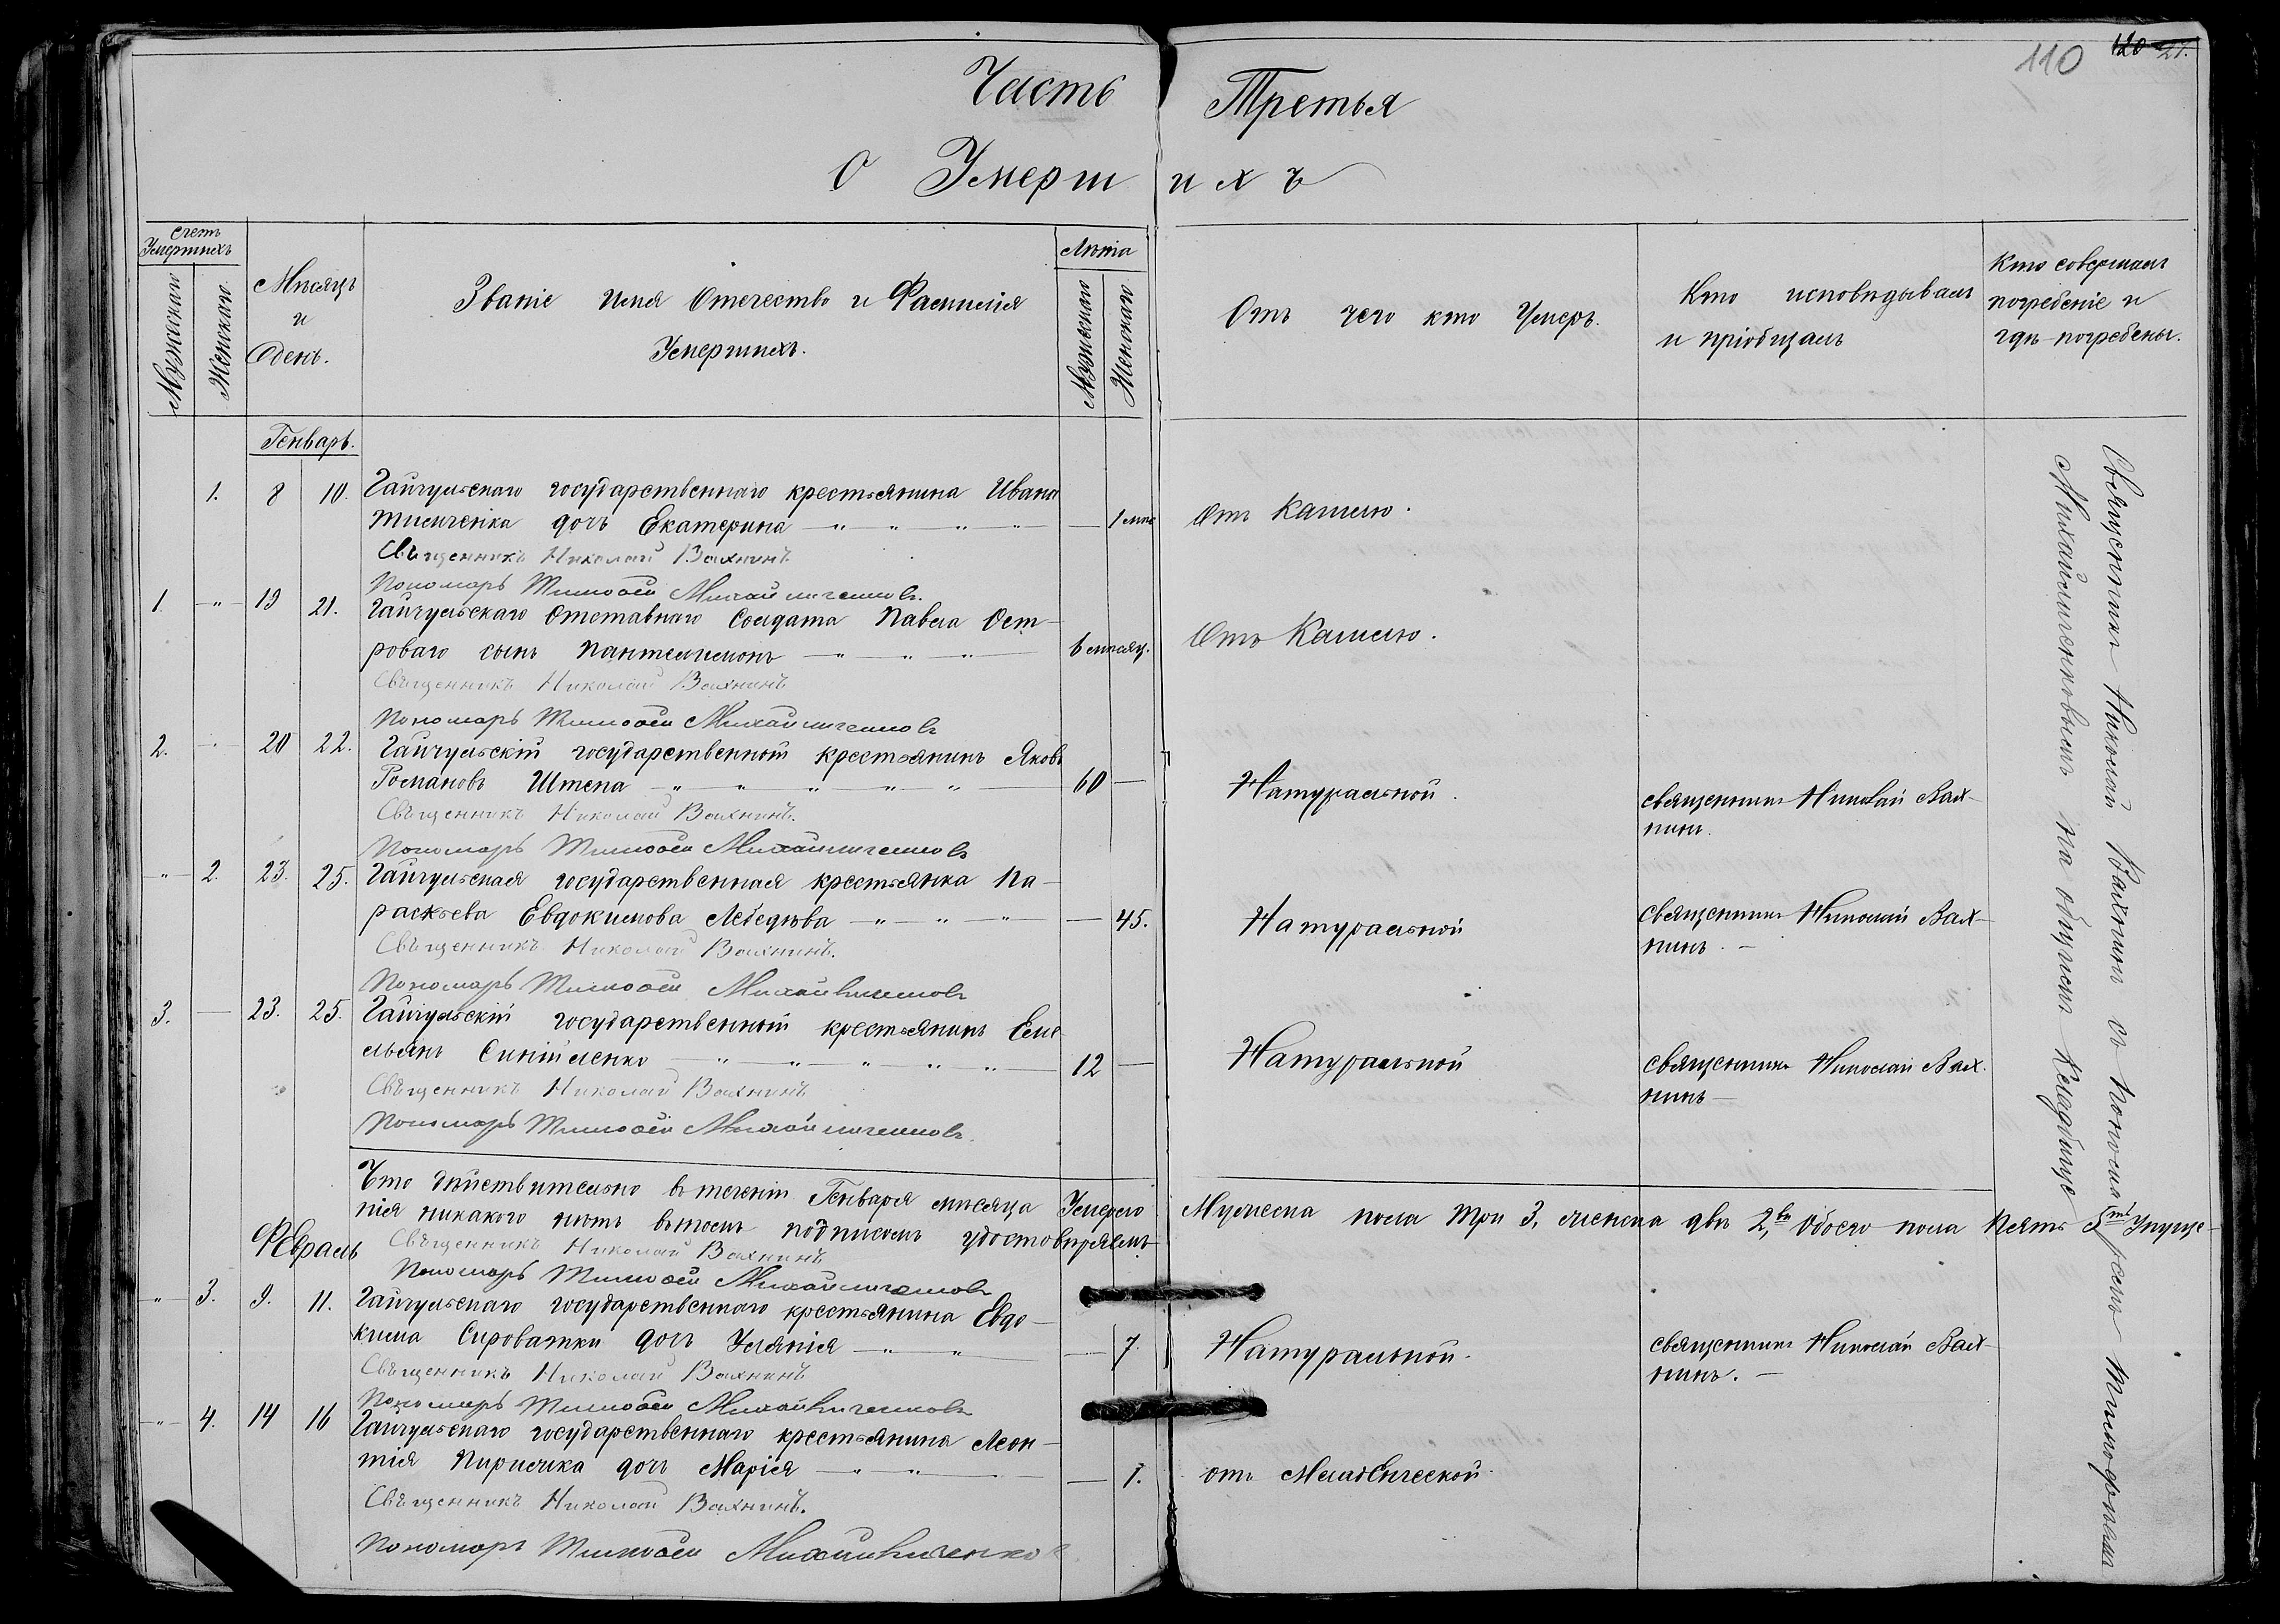 110 120 21.
Часть Третья
О Умершихъ
Счетъ Умершихъ
Мужескаго
Женскаго
Мѣсяцъ и День.
Званіе имя Отечество и Фамилія Умершихъ.
Лѣта
Мужескаго
Женскаго
Отъ чего кто Умеръ.
Кто исповѣдывалъ и пріобщалъ
Кто совершалъ погребеніе и гдѣ погребены.
Генварь.
1. 8 10. Гайчульскаго государственнаго крестьянина Ивана
дочь Екатерина — 1 мѣс Отъ Кашлю.
Священникъ Николай Вахнинъ
Пономарь Тимофей Михайличенковъ.
1. 19 21. Гайчульскаго Отставнаго Солдата Павла Ост-
роваго сынъ Пантелимонъ 6 мѣсяц. Отъ Кашлю.
Священникъ Николай Вахнинъ
Пономарь Тимофей Михайличенковъ
2. 20 22. Гайчульскій государственной крестьянинъ Яковъ
Романовъ Штепа 60 — Натуральной. священникъ Николай Вах-
нинъ.
Священникъ Николай Вахнинъ.
Пономарь Тимофей Михайличенковъ
2. 23. 25. Гайчульская государственная крестьянка Па-
раскева Евдокимова Лебедѣва — 45. Натуральной священникъ Николай Вах-
нинъ. —
Священникъ Николай Вахнинъ.
Пономарь Тимофей Михайличенковъ
3. — 23. 25. Гайчульскій государственной крестьянинъ Еме
льянъ 12 — Натуральной священникъ Николай Вах.
нинъ —
Священникъ Николай Вахнинъ
Пономарь Тимофей Михайличенковъ.
Что дѣйствительно въ теченіи Генваря мѣсяца Умерло Мужеска пола три 3, женска двѣ 2, Обоего пола Пять 5 Упуще-
нія никакого нѣтъ въ томъ подписомъ удостовѣряемъ
Священникъ Николай Вахнинъ
Пономарь Тимофей Михайличенковъ
Февраль
3. 9. 11. Гайчульскаго государственнаго крестьянина Евдо-
кима Сироватки дочь Уліянія — 7. Натуральной. священникъ Николай Вах-
нинъ. —
Священникъ Николай Вахнинъ
Пономарь Тимофей Михайличенковъ
4. 14 16 Гайчульскаго государственнаго крестьянина Леон-
тія дочь Марія — 1. отъ Младѣнческой.
Священникъ Николай Вахнинъ.
Пономарь Тимофей Михайличенковъ
Священникъ Николай Вахнинъ съ Пономаремъ Тимофѣемъ
Михайличенковымъ на общемъ Кладбищѣ